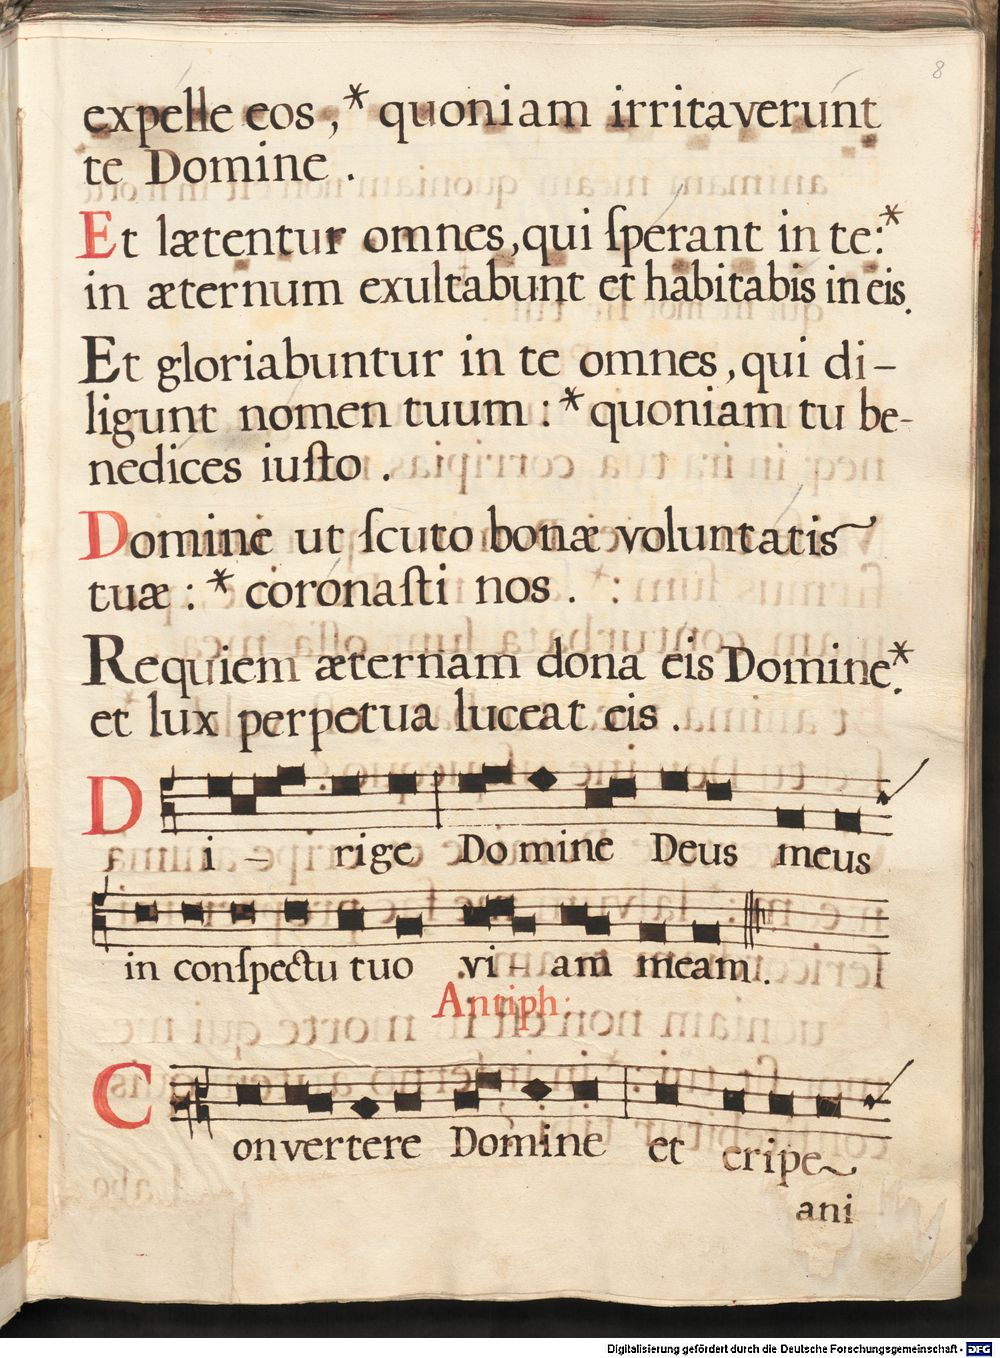 8
expelle eos ,* quoniam irritaverunt
te Domine .
Et lætentur omnes, qui ſperant in te:*
in æternum exultabunt et habitabis in eis.
Et gloriabuntur in te omnes , qui di-
ligunt nomen tuum : * quoniam tu be-
nedices iuſto .
Domine ut ſcuto bonæ voluntatis
tuæ : * coronaſti nos . :
Requiem æternam dona eis Domine.*
et lux perpetua luceat eis .
Di - rige Domine Deus meus
in conſpectu tuo vi - am meam .
Antiph:
Convertere Domine et eripe
ani
Digitalisierung gefördert durch die Deutsche Forschungsgemeinschaft - DFG